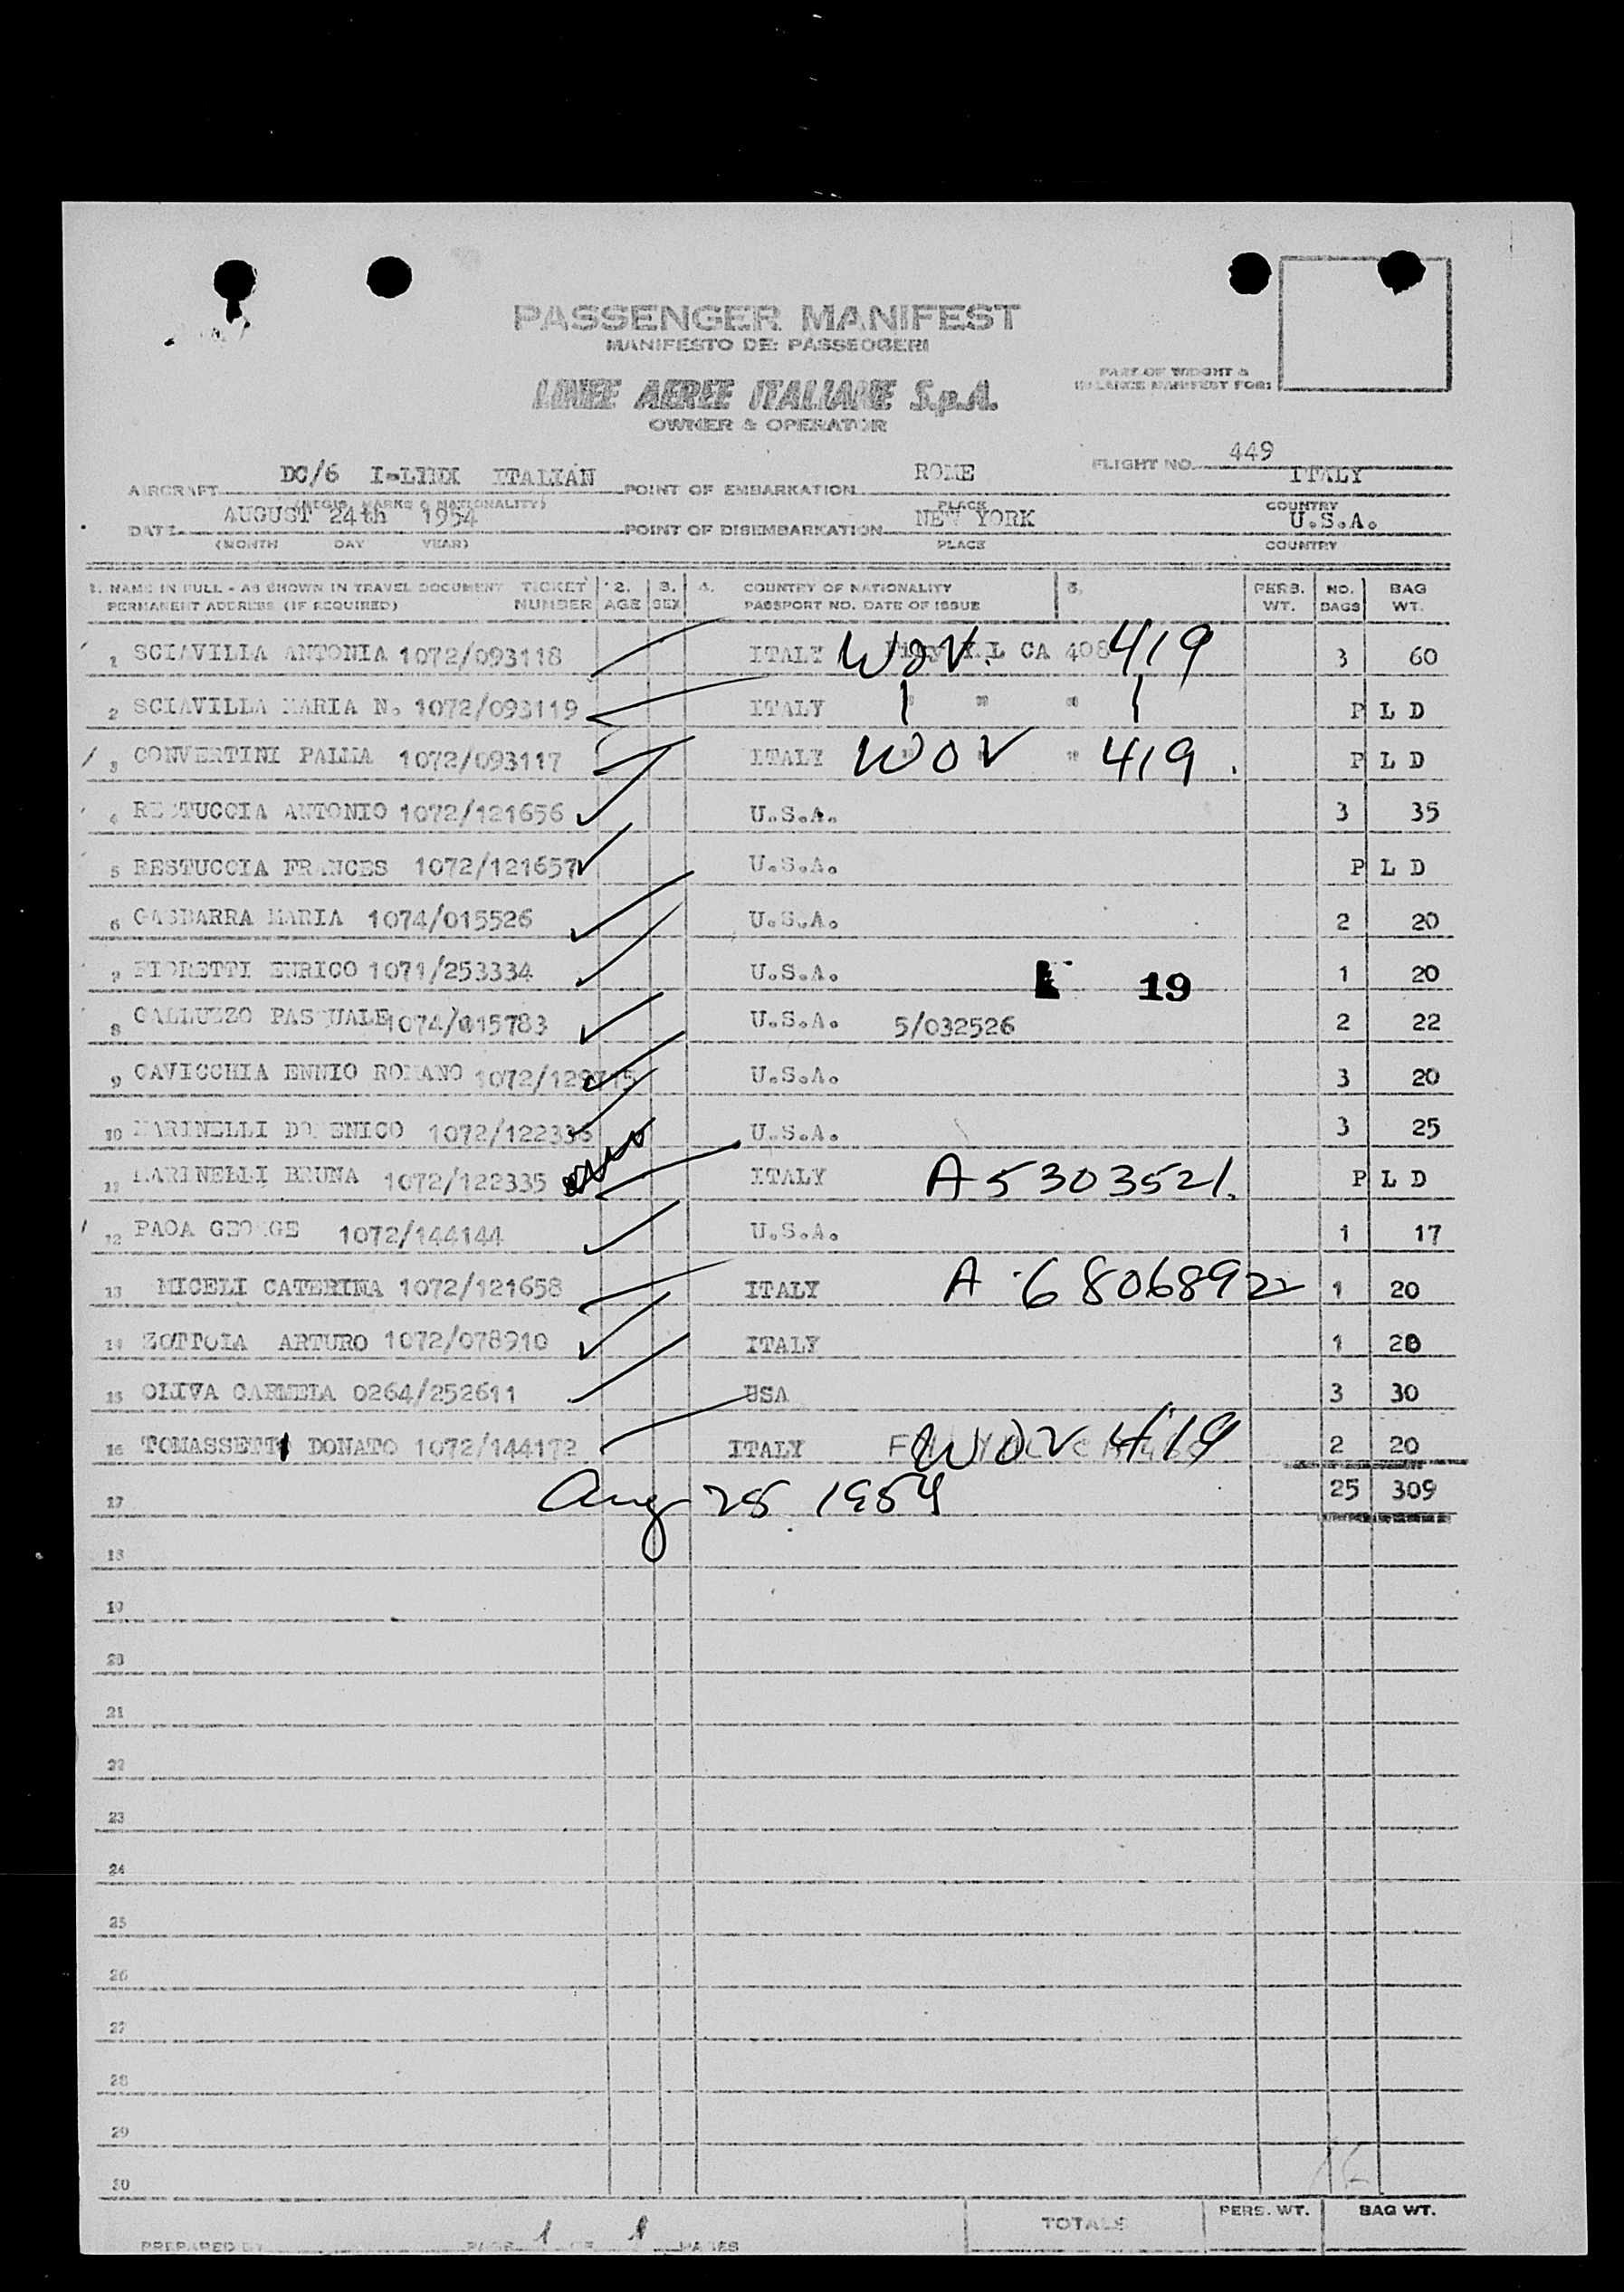 PASSENGER MANIFEST
MANIFESTO DEI PASSEGGERI
LINEE AEREE ITALIANE S.p.A.
OWNER & OPERATOR
PART OF WEIGHT &
BALANCE MANIFEST FOR:
FLIGHT NO. 449
AIRCRAFT DC/6 ITALIAN POINT OF EMBARKATION ROME ITALY
(REGIS. MARKS & NATIONALITY) PLACE COUNTRY
DATE AUGUST 24th 1954 POINT OF DISEMBARKATION NEW YORK U.S.A.
(MONTH DAY YEAR) PLACE COUNTRY
1. NAME IN FULL - AS SHOWN IN TRAVEL DOCUMENT TICKET 2. 3. 4. COUNTRY OF NATIONALITY 5. PERS. NO. BAG
PERMANENT ADDRESS (IF REQUIRED) NUMBER AGE SEX PASSPORT NO. DATE OF ISSUE WT. BAGS WT.
1 SCIAVILLA ANTONIA 1072/093118 ITALY WOV. L CA 408 419 3 60
2 SCIAVILLA MARIA N. 1072/093119 ITALY " " " P L D
3 CONVERTINI PALMA 1072/093117 ITALY WOV " 419. P L D
4 RESTUCCIA ANTONIO 1072/121656 U.S.A. 3 35
5 RESTUCCIA FRANCES 1072/121657 U.S.A. P L D
6 GASBARRA MARIA 1074/015526 U.S.A. 2 20
7 FIORETTI ENRICO 1071/253334 U.S.A. 19 1 20
8 GALLUZZO PASQUALE 1074/015783 U.S.A. 5/032526 2 22
9 CAVICCHIA ENNIO ROMANO U.S.A. 3 20
10 MARINELLI DOMENICO 1072/122336 U.S.A. 3 25
11 MARINELLI BRUNA 1072/122335 ITALY A5303521. P L D
12 PAOA GEORGE 1072/144144 U.S.A. 1 17
13 MICELI CATERINA 1072/121658 ITALY A 6806892 1 20
14 ZOTTOLA ARTURO 1072/078910 ITALY 1 20
15 OLIVA CARMELA 0264/252611 USA 3 30
16 TOMASSETTI DONATO 1072/144172 ITALY WOV 419 2 20
17 Aug 25 1954 25 309
18
19
20
21
22
23
24
25
26
27
28
29
30
TOTALS PERS. WT. BAG WT.
PREPARED BY PAGE 1 OF 1 PAGES